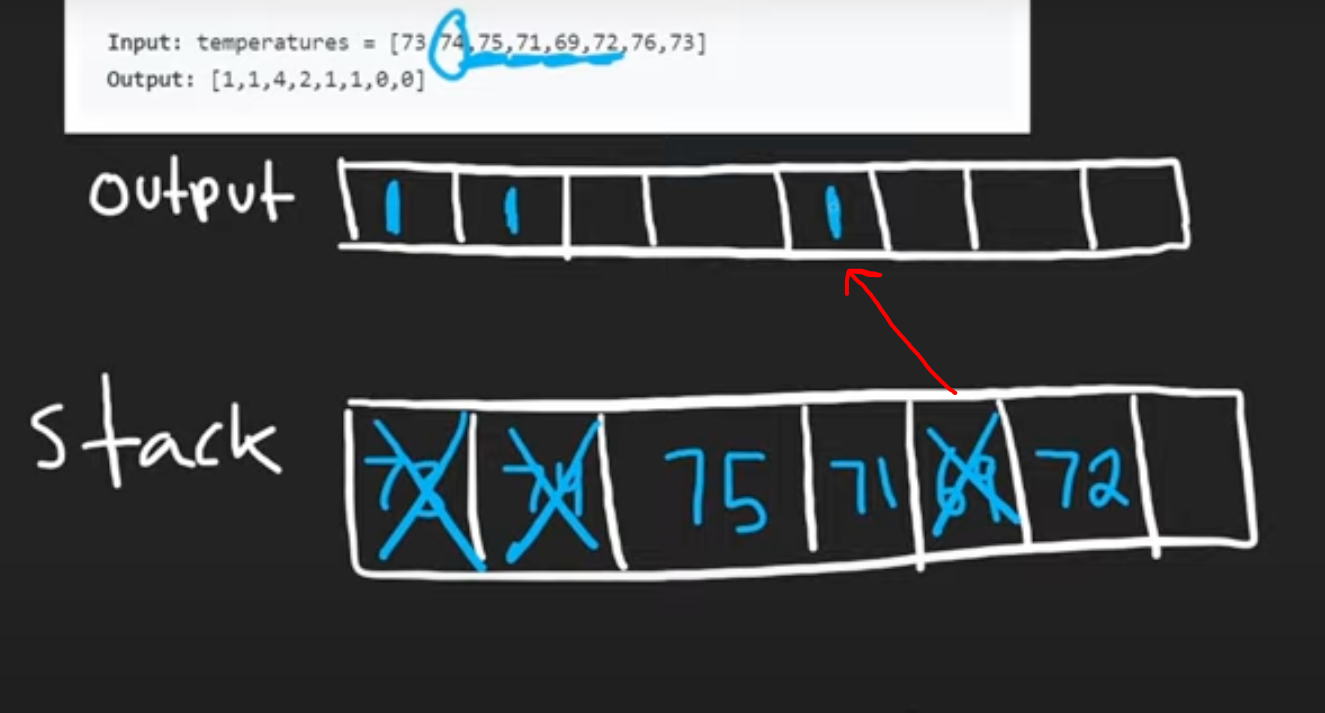 Input: temperatures = [73,74,75,71,69,72,76,73]
Output: [1,1,4,2,1,1,0,0]
output 1 1 1
Stack 73 74 75 71 69 72